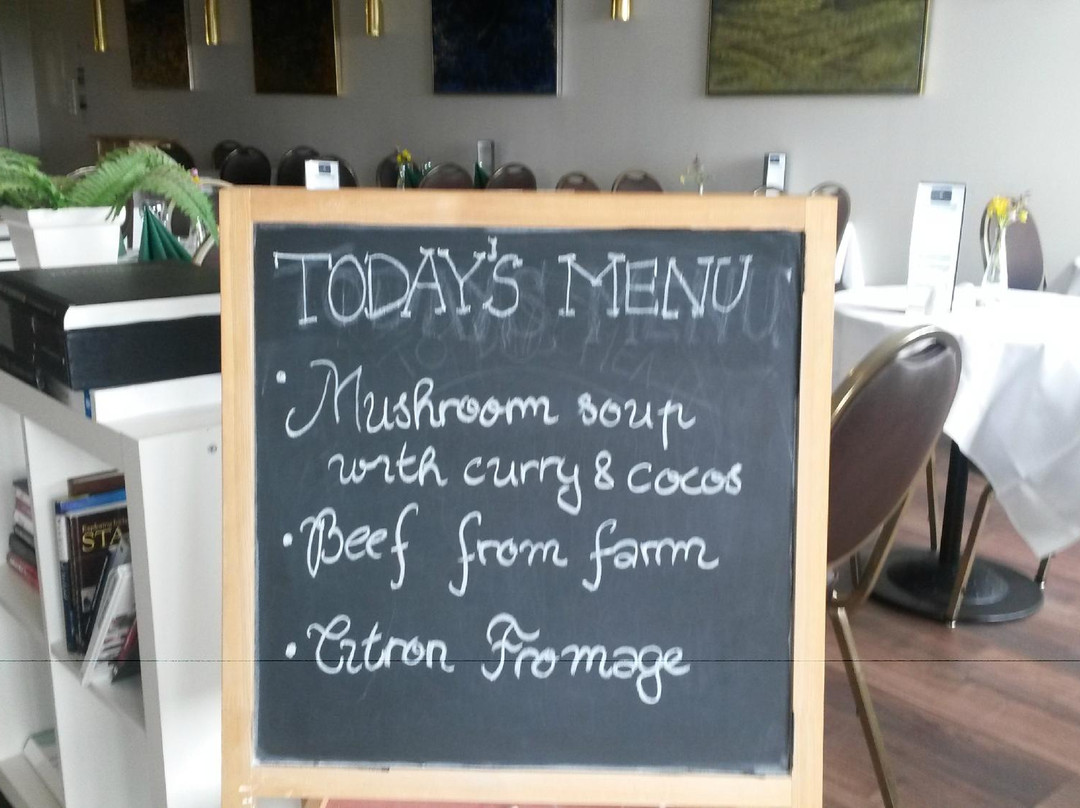 TODAY'S MENU
• Mushroom soup
with curry & cocos
• Beef from farm
• Citron Fromage
STA